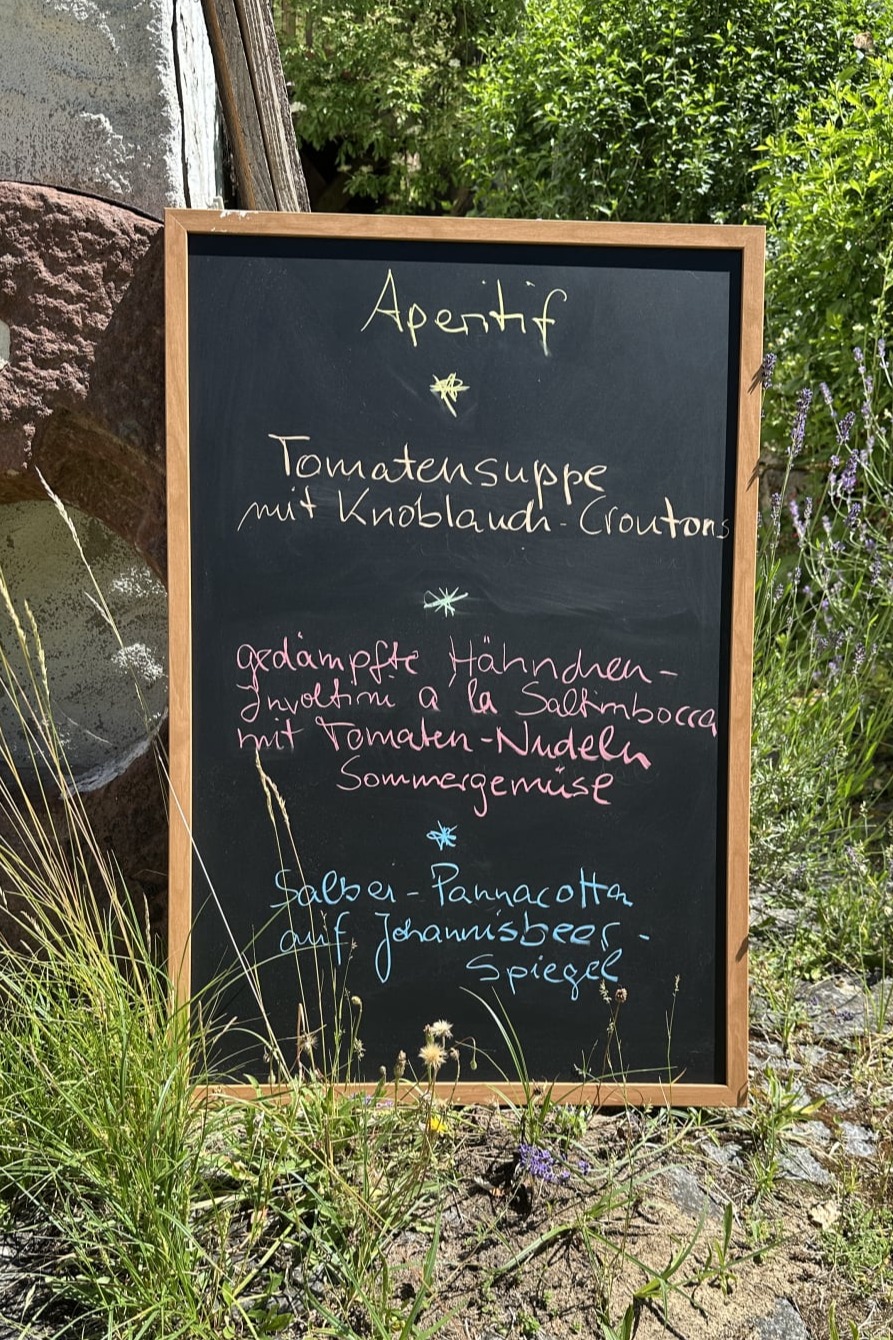 Aperitif
Tomatensuppe
mit Knoblauch-Croutons
gedämpfte Hähnchen-
Involtini a la Saltimbocca
mit Tomaten-Nudeln
Sommergemüse
Salbei-Pannacotta
auf Johannisbeer-
Spiegel